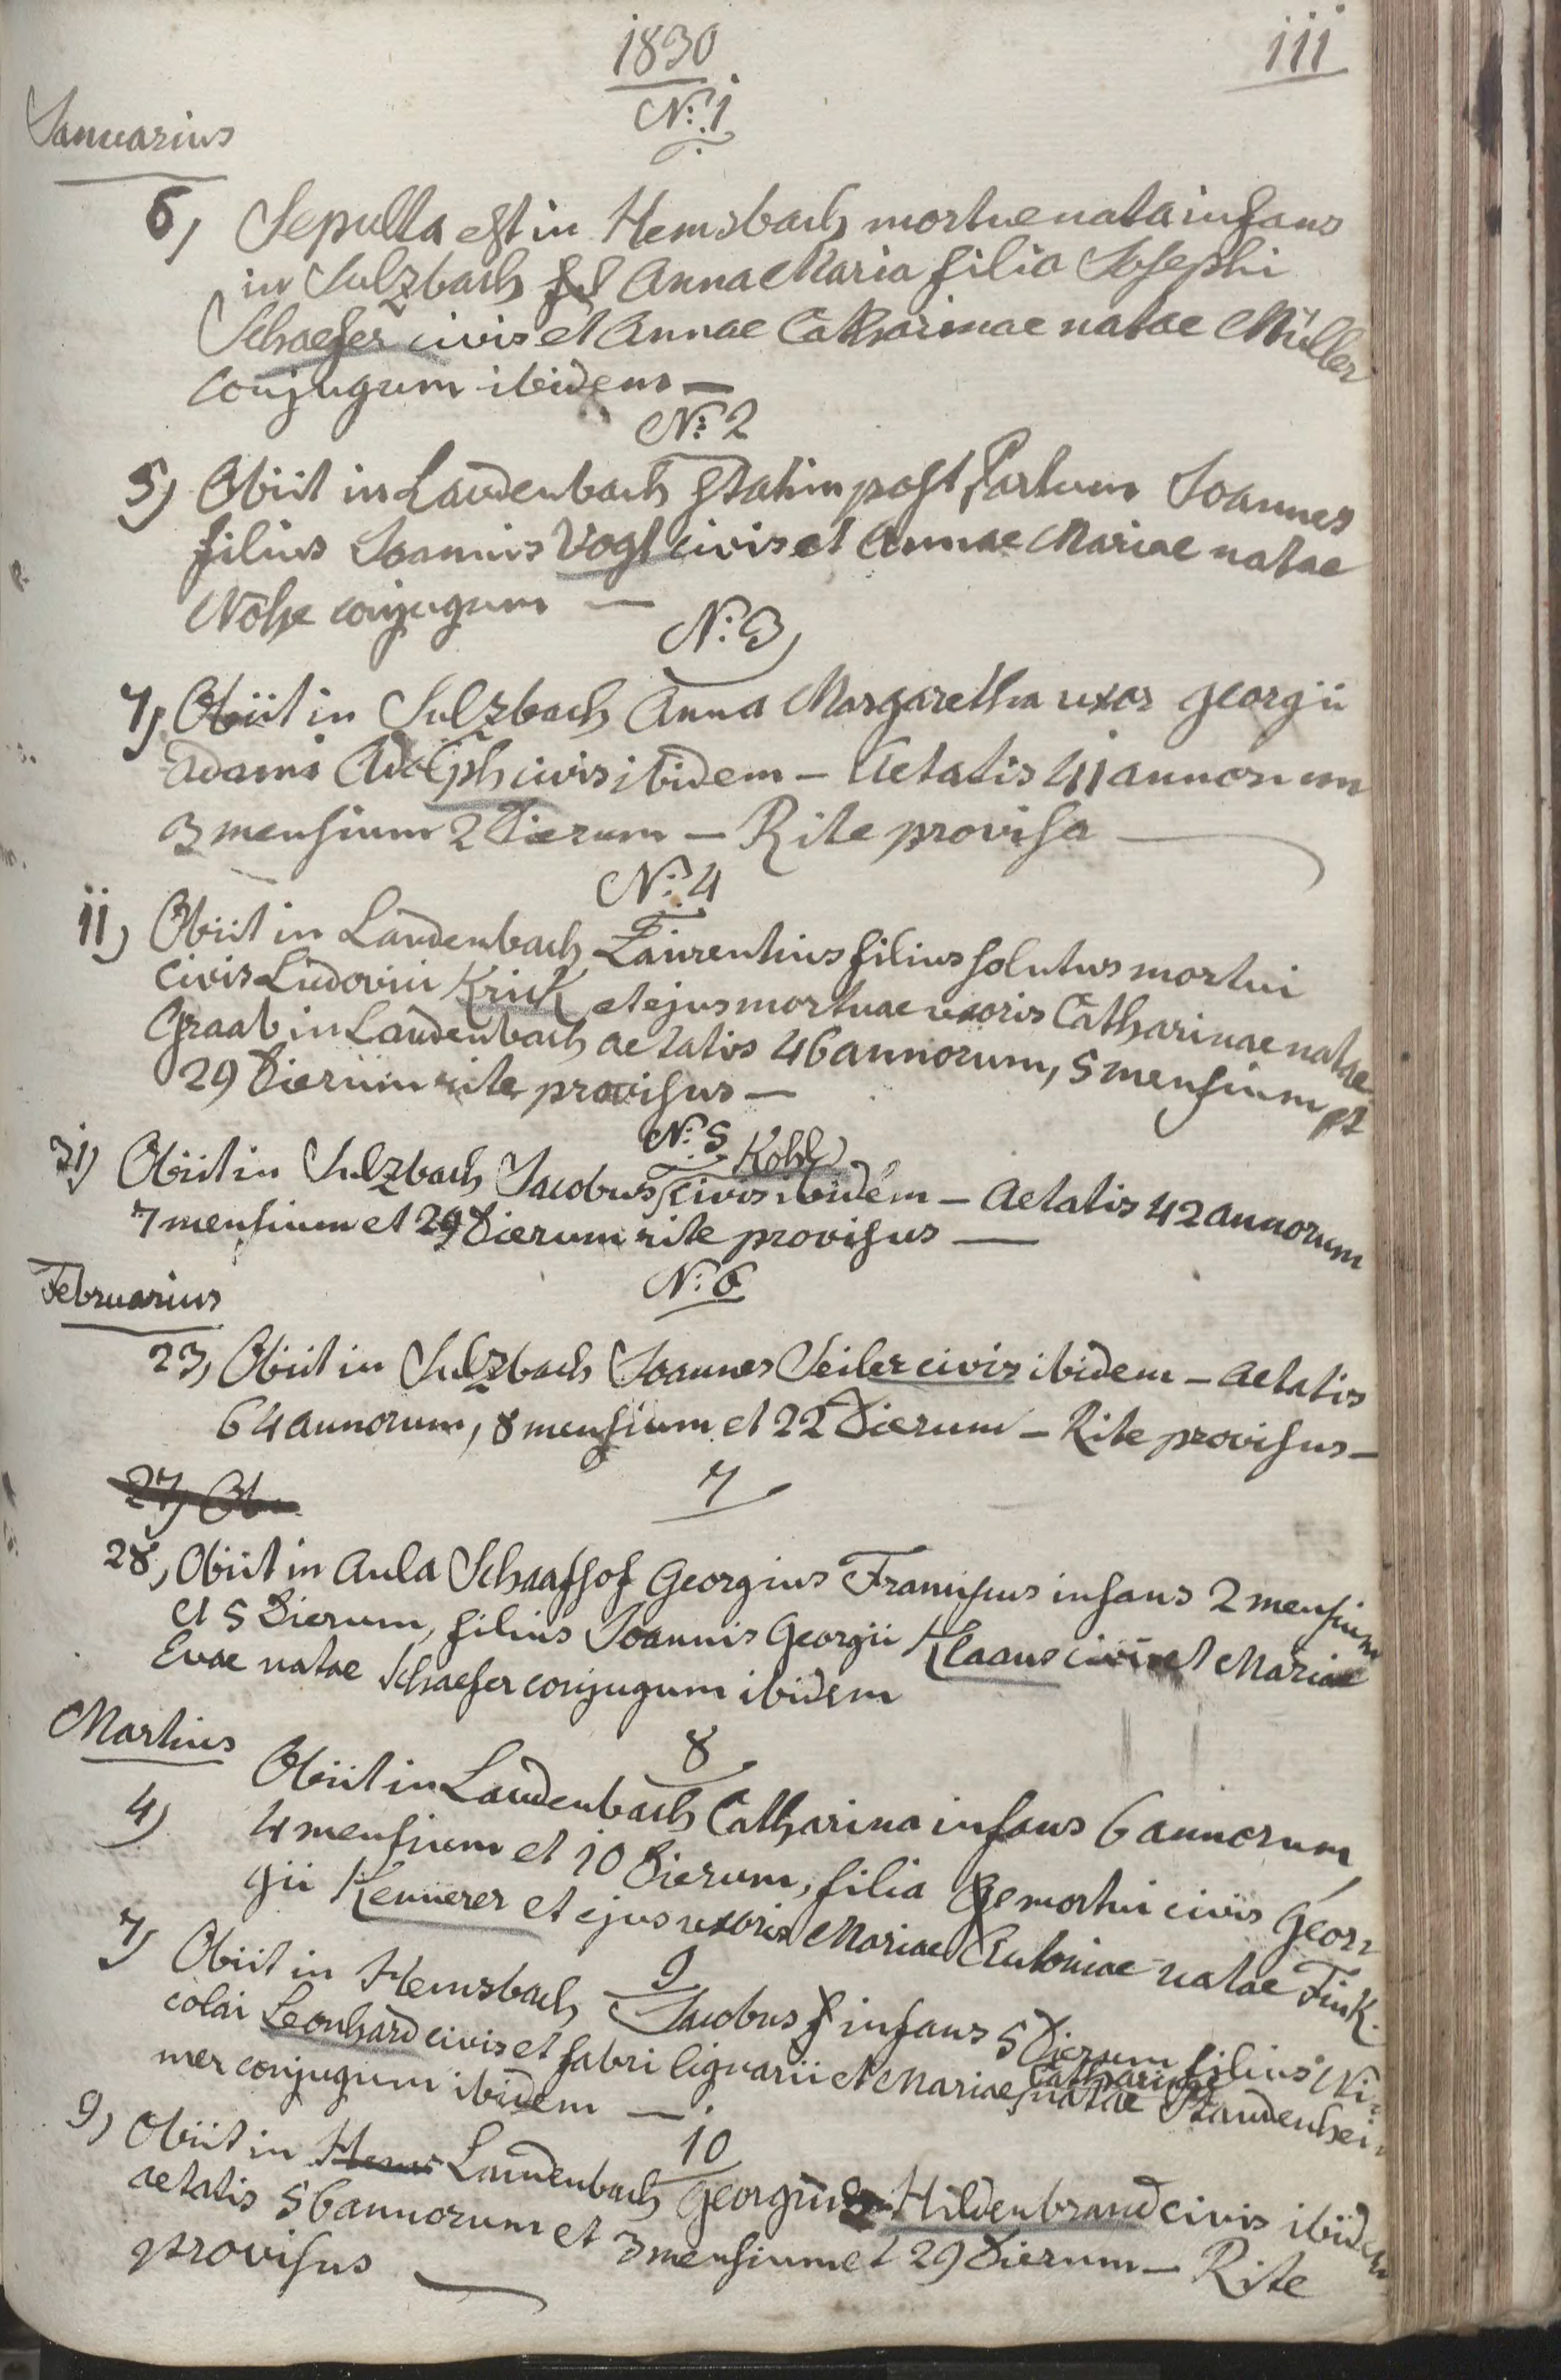 1830
111
N: 1
Januarius
6, Sepulta est in Hemsbach mortue nata infans
in Sulzbach Anna Maria filia Josephi
Schaefer civis et Annae Catharinae natae Müller
conjugum ibidem —
N: 2
5) Obiit in Laudenbach statim post Partum Joannes
filius Joannis Vogt civis et Annae Mariae natae
Nohe conjugum —
N: 3,
7, Obiit in Sulzbach Anna Margaretha uxor Georgii
Adami Adolph civis ibidem — Aetatis 41 annorum
3 mensium 2 Dierum — Rite provisa —
N: 4
11, Obiit in Laudenbach Laurentius filius solutus mortui
civis Ludovici Krick et ejus mortuae uxoris Catharinae natae
Graab in Laudenbach aetatis 46 annorum, 5 mensium et
29 Dierum rite provisus —
N: 5
Kohl
31) Obiit in Sulzbach Jacobus civis ibidem — Aetatis 42 annorum
7 mensium et 29 Dierum rite provisus —
N: 6
Februarius
23, Obiit in Sulzbach Joannes Seiler civis ibidem — Aetatis
64 annorum, 8 mensium et 22 Dierum — Rite provisus —
27, Ob
7
28, Obiit in Aula Schaafhof Georgius Franciscus infans 2 mensium
et 5 Dierum, filius Joannis Georgii Klaans civis et Mariae
Evae natae Schaefer conjugum ibidem
Martius
8
4) Obiit in Laudenbach Catharina infans 6 annorum,
4 mensium et 10 Dierum, filia mortui civis Geor=
gii Kennerer et ejus uxoris Mariae Antoniae natae Fink.
9
7) Obiit in Hemsbach Jacobus infans 5 Dierum filius Ni=
colai Leonhard civis et fabri lignarii et Mariae Catharinae natae Staudenhei=
mer conjugum ibidem —
10
9) Obiit in Hems Laudenbach Georgius Hildenbrand civis ibidem
aetatis 56 annorum et 3 mensium et 29 Dierum — Rite
provisus —